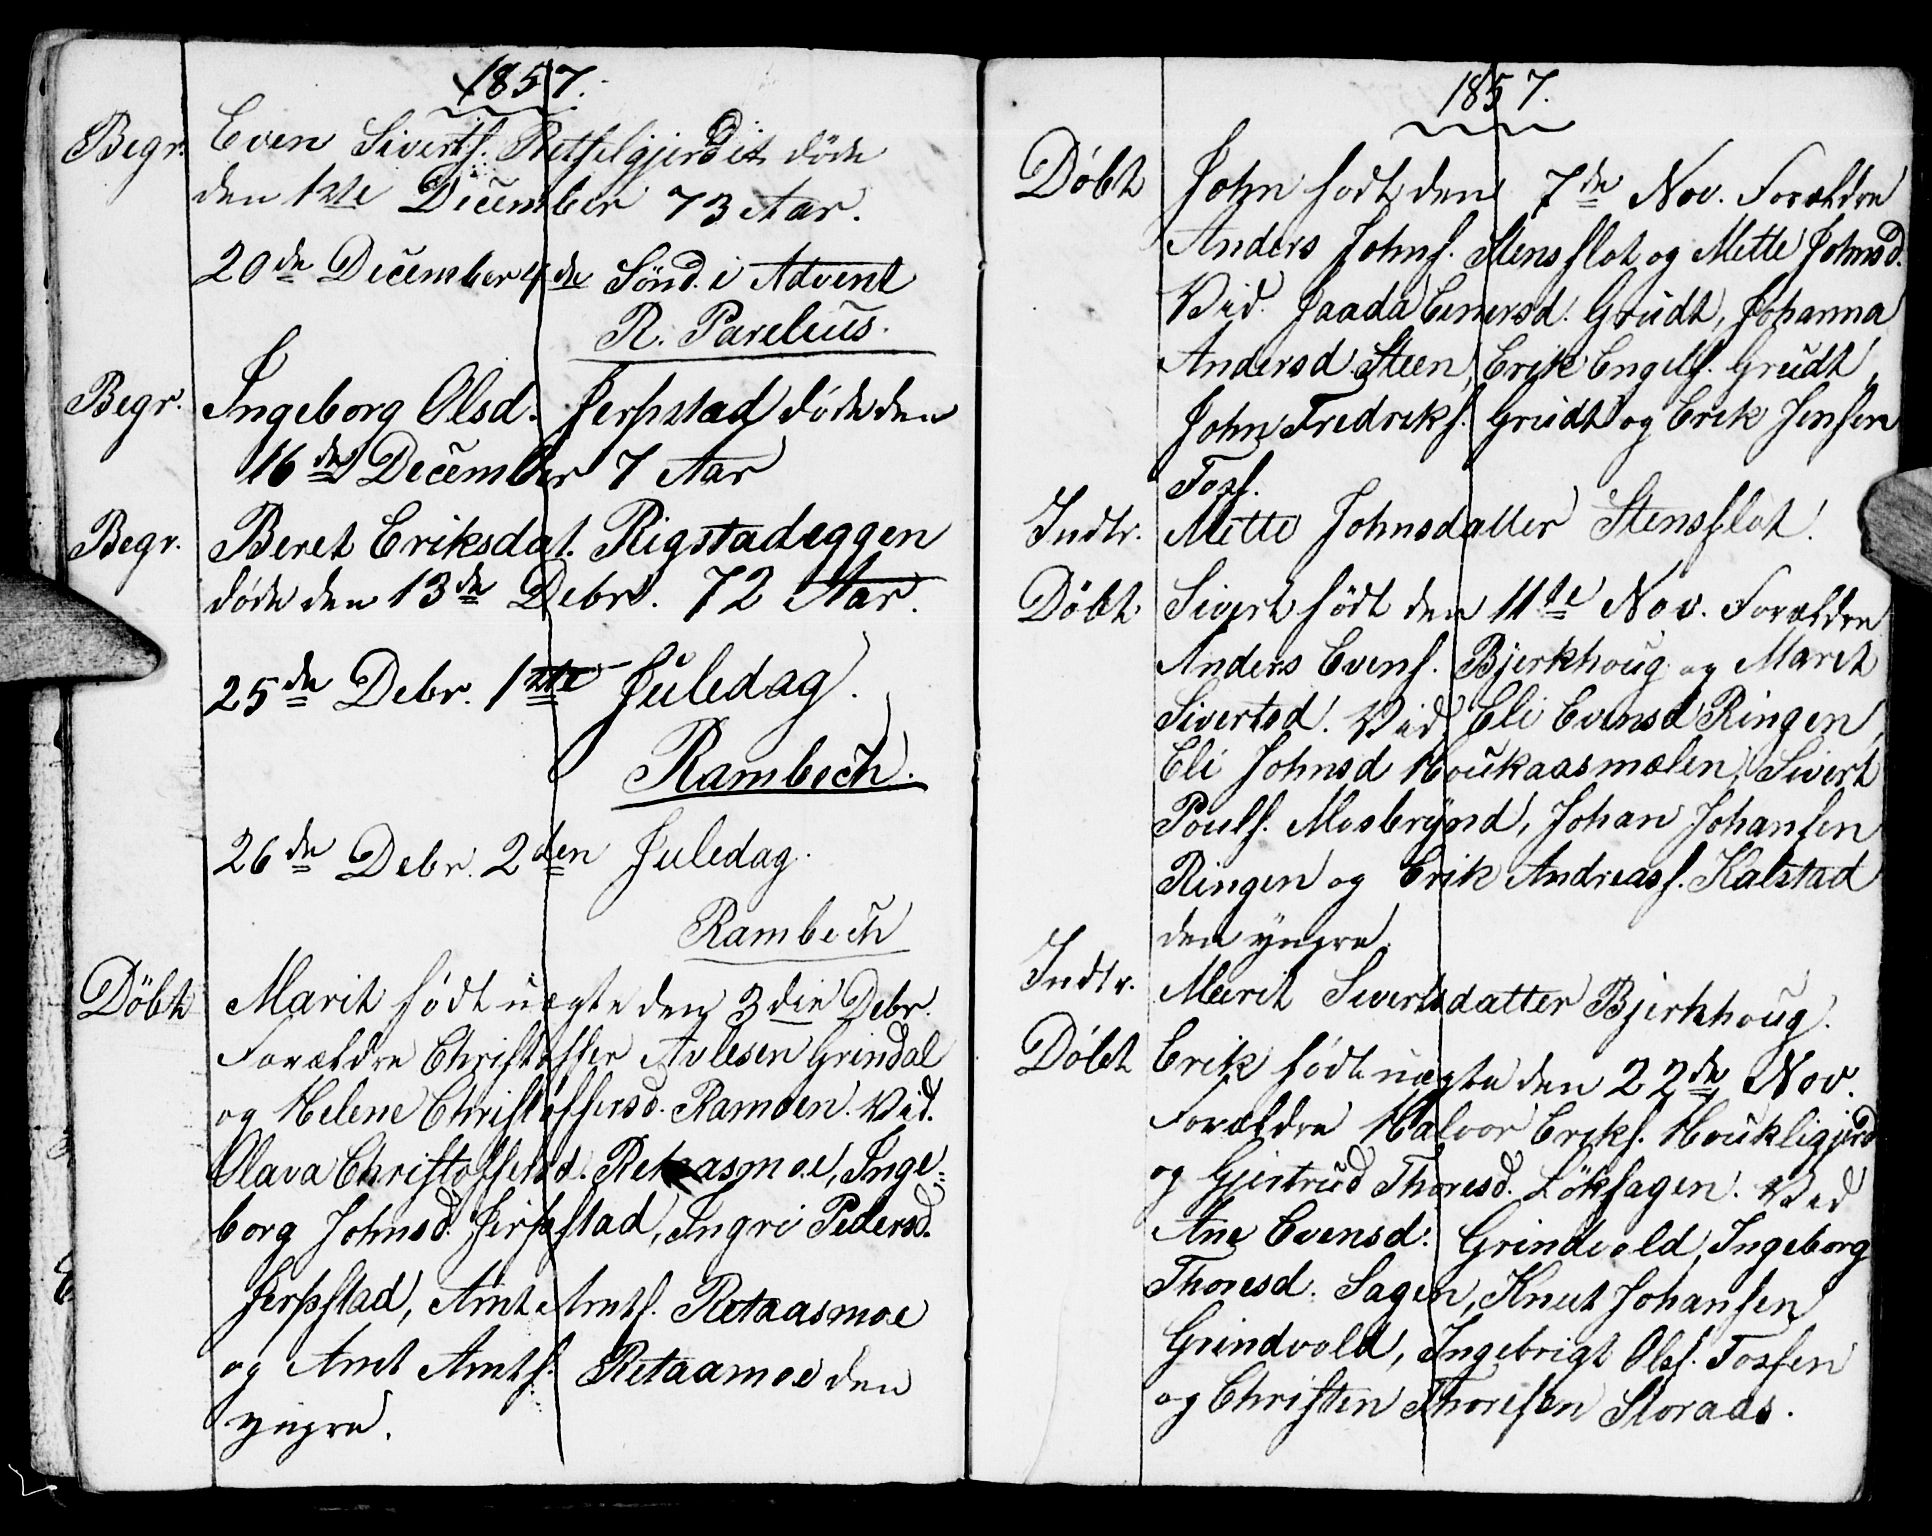 1857.
Begr. Even Siverts. Retselgjerdet döde
den 1ste December 73 Aar.
20de December 4de Sönd. i Advent
R. Parelius.
Begr. Ingeborg Olsd. Jerpstad döde den
16de December 7 Aar
Begr. Beret Eriksdat. Rigstadeggen
döde den 13de Debr. 72 Aar.
25de Debr. 1ste Juledag.
Rambech.
26de Debr. 2den Juledag.
Rambech
Döbt Marit födt uægte den 3die Debr.
Forældre Christoffer Avlesen Grindal
og Helene Christoffersd. Ramoen. Vid.
Olava Christoffersd. Retaasmoe, Inge-
borg Johnsd. Jerpstad, Ingri Pedersd.
Jerpstad, Arnt Arnts. Retaasmoe
og Arnt Arnts. Retaamoe den
yngre.
1857.
Döbt John födt den 7de Nov. Forældre
Anders Johns. Stensflot og Mette Johnsd.
Vid. Jaada Einersd. Grüdt, Johanna
Andersd Steen, Erik Engels. Grüdt,
John Fredriks. Grüdt og Erik Jensen
Foss.
Indtr. Mette Johnsdatter Stensflot.
Döbt Sivert födt den 11te Nov. Forældre
Anders Evens. Bjerkhoug og Marit
Sivertsd. Vid. Eli Evensd Ringen,
Eli Johnsd Houkaasmælen, Sivert
Pouls. Mosbrynd, Johan Johansen
Ringen og Erik Andreass. Kalstad
den yngre.
Indtr. Marit Sivertsdatter Bjerkhoug.
Döbt Erik födt uægte den 22de Nov.
Forældre Halvor Eriks. Houkligjerd
og Gjertrud Thoresd. Löksagen. Vid
Ane Evensd. Grindvold, Ingeborg
Thoresd. Sagen, Knut Johansen
Grindvold, Ingebrigt Ols. Fossen
og Christen Thoresen Storaas.